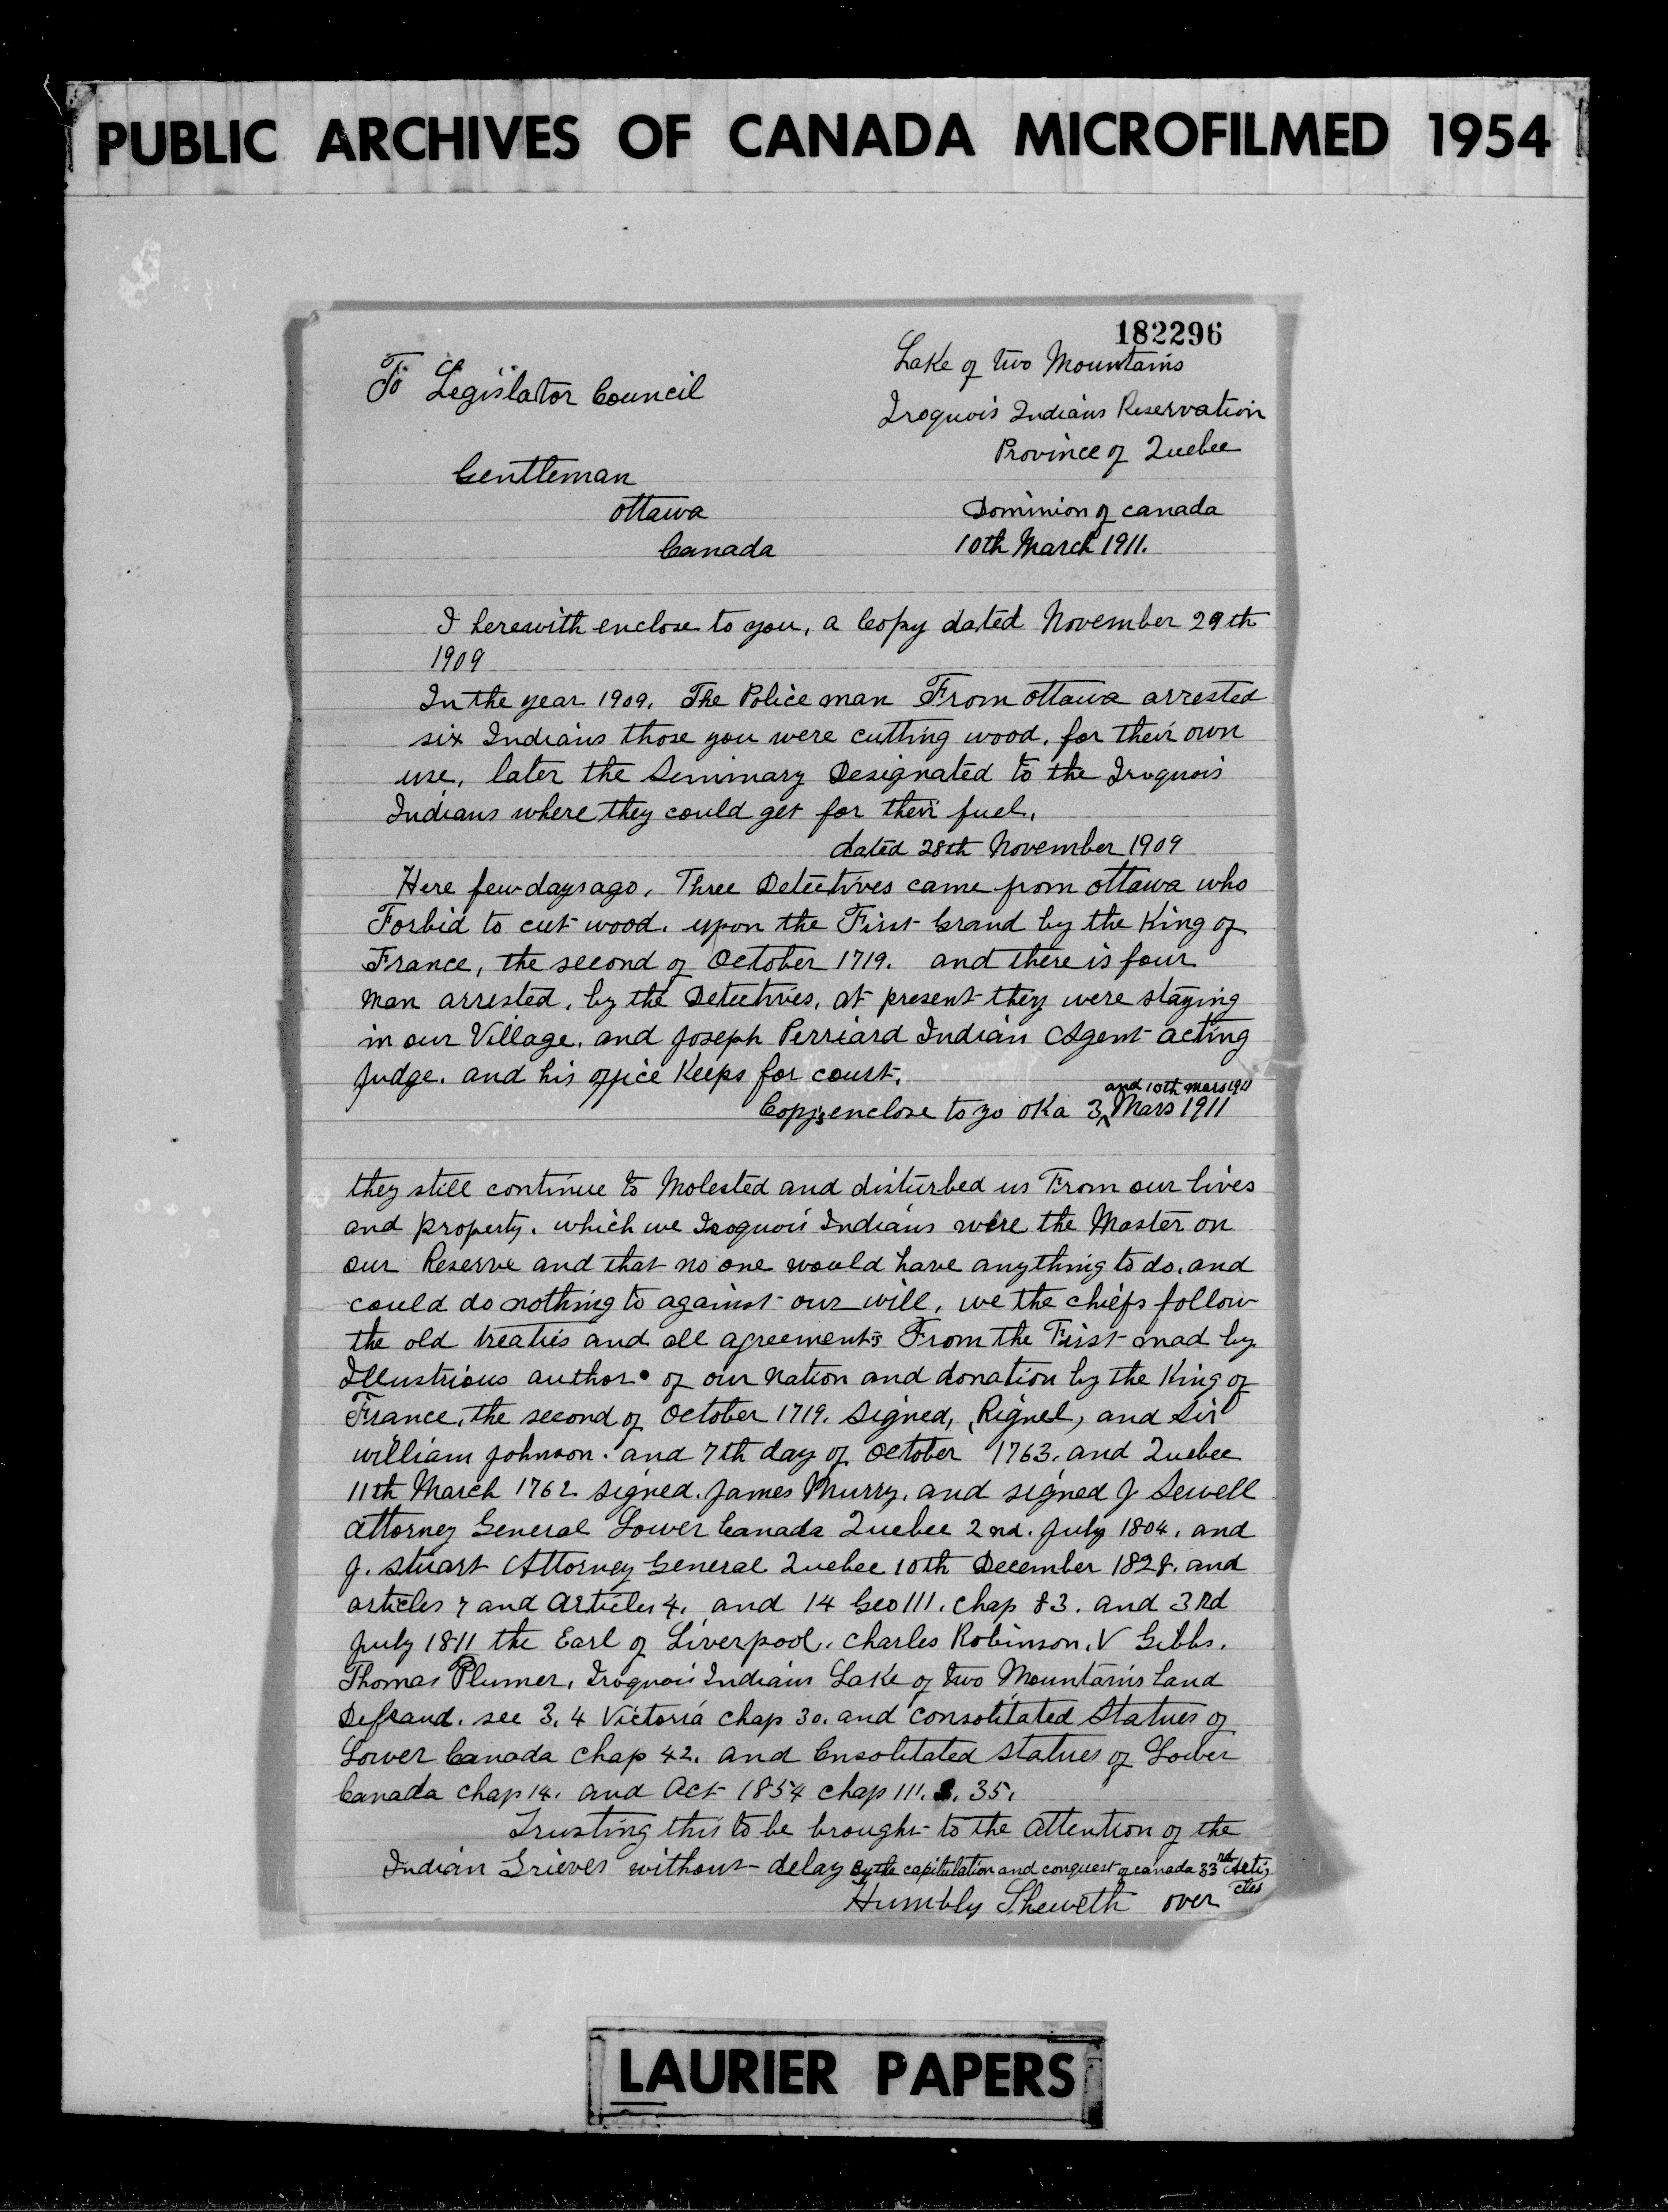 PUBLIC ARCHIVES OF CANADA MICROFILMED 1954
182296
Lake of two Mountains
To Legislator Council
Iroquois Indians Reservation
Province of Quebec
Gentleman
Ottawa
Dominion of canada
Canada
10th March 1911.
I herewith enclose to you, a Copy dated November 29th
1909
In the year 1909. The Police man From ottawa arrested
six Indians those you were cutting wood, for their own
use, later the Seminary Designated to the Iroquois
Indians where they could get for their fuel.
dated 28th November 1909
Here few days ago. Three Detectives came from ottawa who
Forbid to cut wood. upon the First Grand by the King of
France, the second of October 1719. and there is four
man arrested, by the Detectives, at present they were staying
in our Village. and Joseph Perriard Indian Agent acting
Judge. and his office Keeps for court.
and 10th mars 1911
Copys enclose to yo oka 3 Mars 1911
they still continue to Molested and disturbed us From our lives
and property. which we Iroquois Indians were the Master on
our Reserve and that no one would have anything to do. and
could do nothing to against our will, we the chiefs follow
the old treaties and all agreements From the First mad by
Illustrious author of our nation and donation by the King of
France, the second of October 1719. signed, (Rignel, and Sir
william Johnson. and 7th day of October 1763. and Quebec
11th March 1762 signed. James Murry. and signed J Sewell
attorney General Lower Canada Quebec 2nd. July 1804. and
J. Stuart Attorney General Quebec 10th December 1828. and
articles 7 and Articles 4. and 14 Geo III. chap 83. and 3Rd
July 1811 the Earl of Liverpool. Charles Robinson, V Gibbs.
Thomas Plumer, Iroquois Indians Lake of two Mountains Land
Defraud. see 3, 4 Victoria chap 30. and consolitated Statues of
Lower Canada Chap 42. and Cnsolitated statues of Lower
Canada chap 14. and Act 1854 chap 111. S. 35.
Trusting this to be brought to the Attention of the
Indian Grieves without delay By the capitulation and conquest of canada 33rd Arti,
cles
Humbly Sheweth over
LAURIER PAPERS